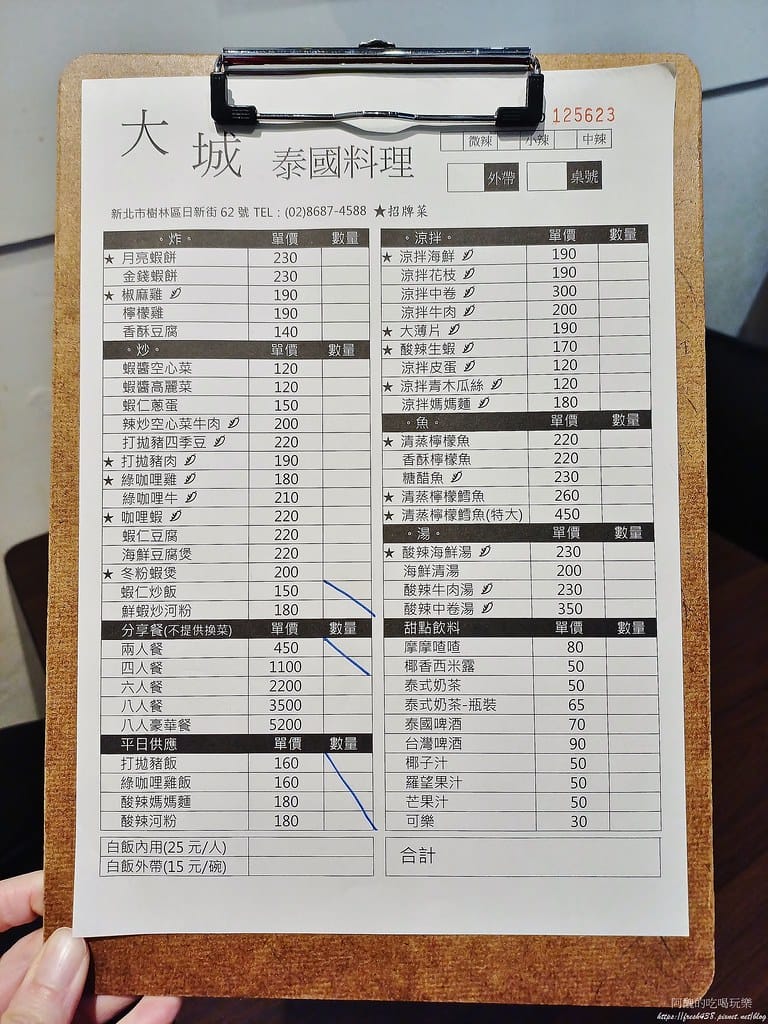 125623
大城 泰國料理
微辣 小辣 中辣
外帶 桌號
新北市樹林區日新街 62 號 TEL：(02)8687-4588 ★招牌菜
。炸。 單價 數量
★ 月亮蝦餅 230
金錢蝦餅 230
★ 椒麻雞 190
檸檬雞 190
香酥豆腐 140
。炒。 單價 數量
蝦醬空心菜 120
蝦醬高麗菜 120
蝦仁蔥蛋 150
辣炒空心菜牛肉 200
打拋豬四季豆 220
★ 打拋豬肉 190
★ 綠咖哩雞 180
綠咖哩牛 210
★ 咖哩蝦 220
蝦仁豆腐 220
海鮮豆腐煲 220
★ 冬粉蝦煲 200
蝦仁炒飯 150
鮮蝦炒河粉 180
分享餐(不提供換菜) 單價 數量
兩人餐 450
四人餐 1100
六人餐 2200
八人餐 3500
八人豪華餐 5200
平日供應 單價 數量
打拋豬飯 160
綠咖哩雞飯 160
酸辣媽媽麵 180
酸辣河粉 180
白飯內用(25 元/人)
白飯外帶(15 元/碗)
。涼拌。 單價 數量
★ 涼拌海鮮 190
涼拌花枝 190
涼拌中卷 300
涼拌牛肉 200
★ 大薄片 190
★ 酸辣生蝦 170
涼拌皮蛋 120
★ 涼拌青木瓜絲 120
涼拌媽媽麵 180
。魚。 單價 數量
★ 清蒸檸檬魚 220
香酥檸檬魚 220
糖醋魚 230
★ 清蒸檸檬鱈魚 260
★ 清蒸檸檬鱈魚(特大) 450
。湯。 單價 數量
★ 酸辣海鮮湯 230
海鮮清湯 200
酸辣牛肉湯 230
酸辣中卷湯 350
甜點飲料 單價 數量
摩摩喳喳 80
椰香西米露 50
泰式奶茶 50
泰式奶茶-瓶裝 65
泰國啤酒 70
台灣啤酒 90
椰子汁 50
羅望果汁 50
芒果汁 50
可樂 30
合計
阿龍的吃喝玩樂
https://fresh438.pixnet.net/blog